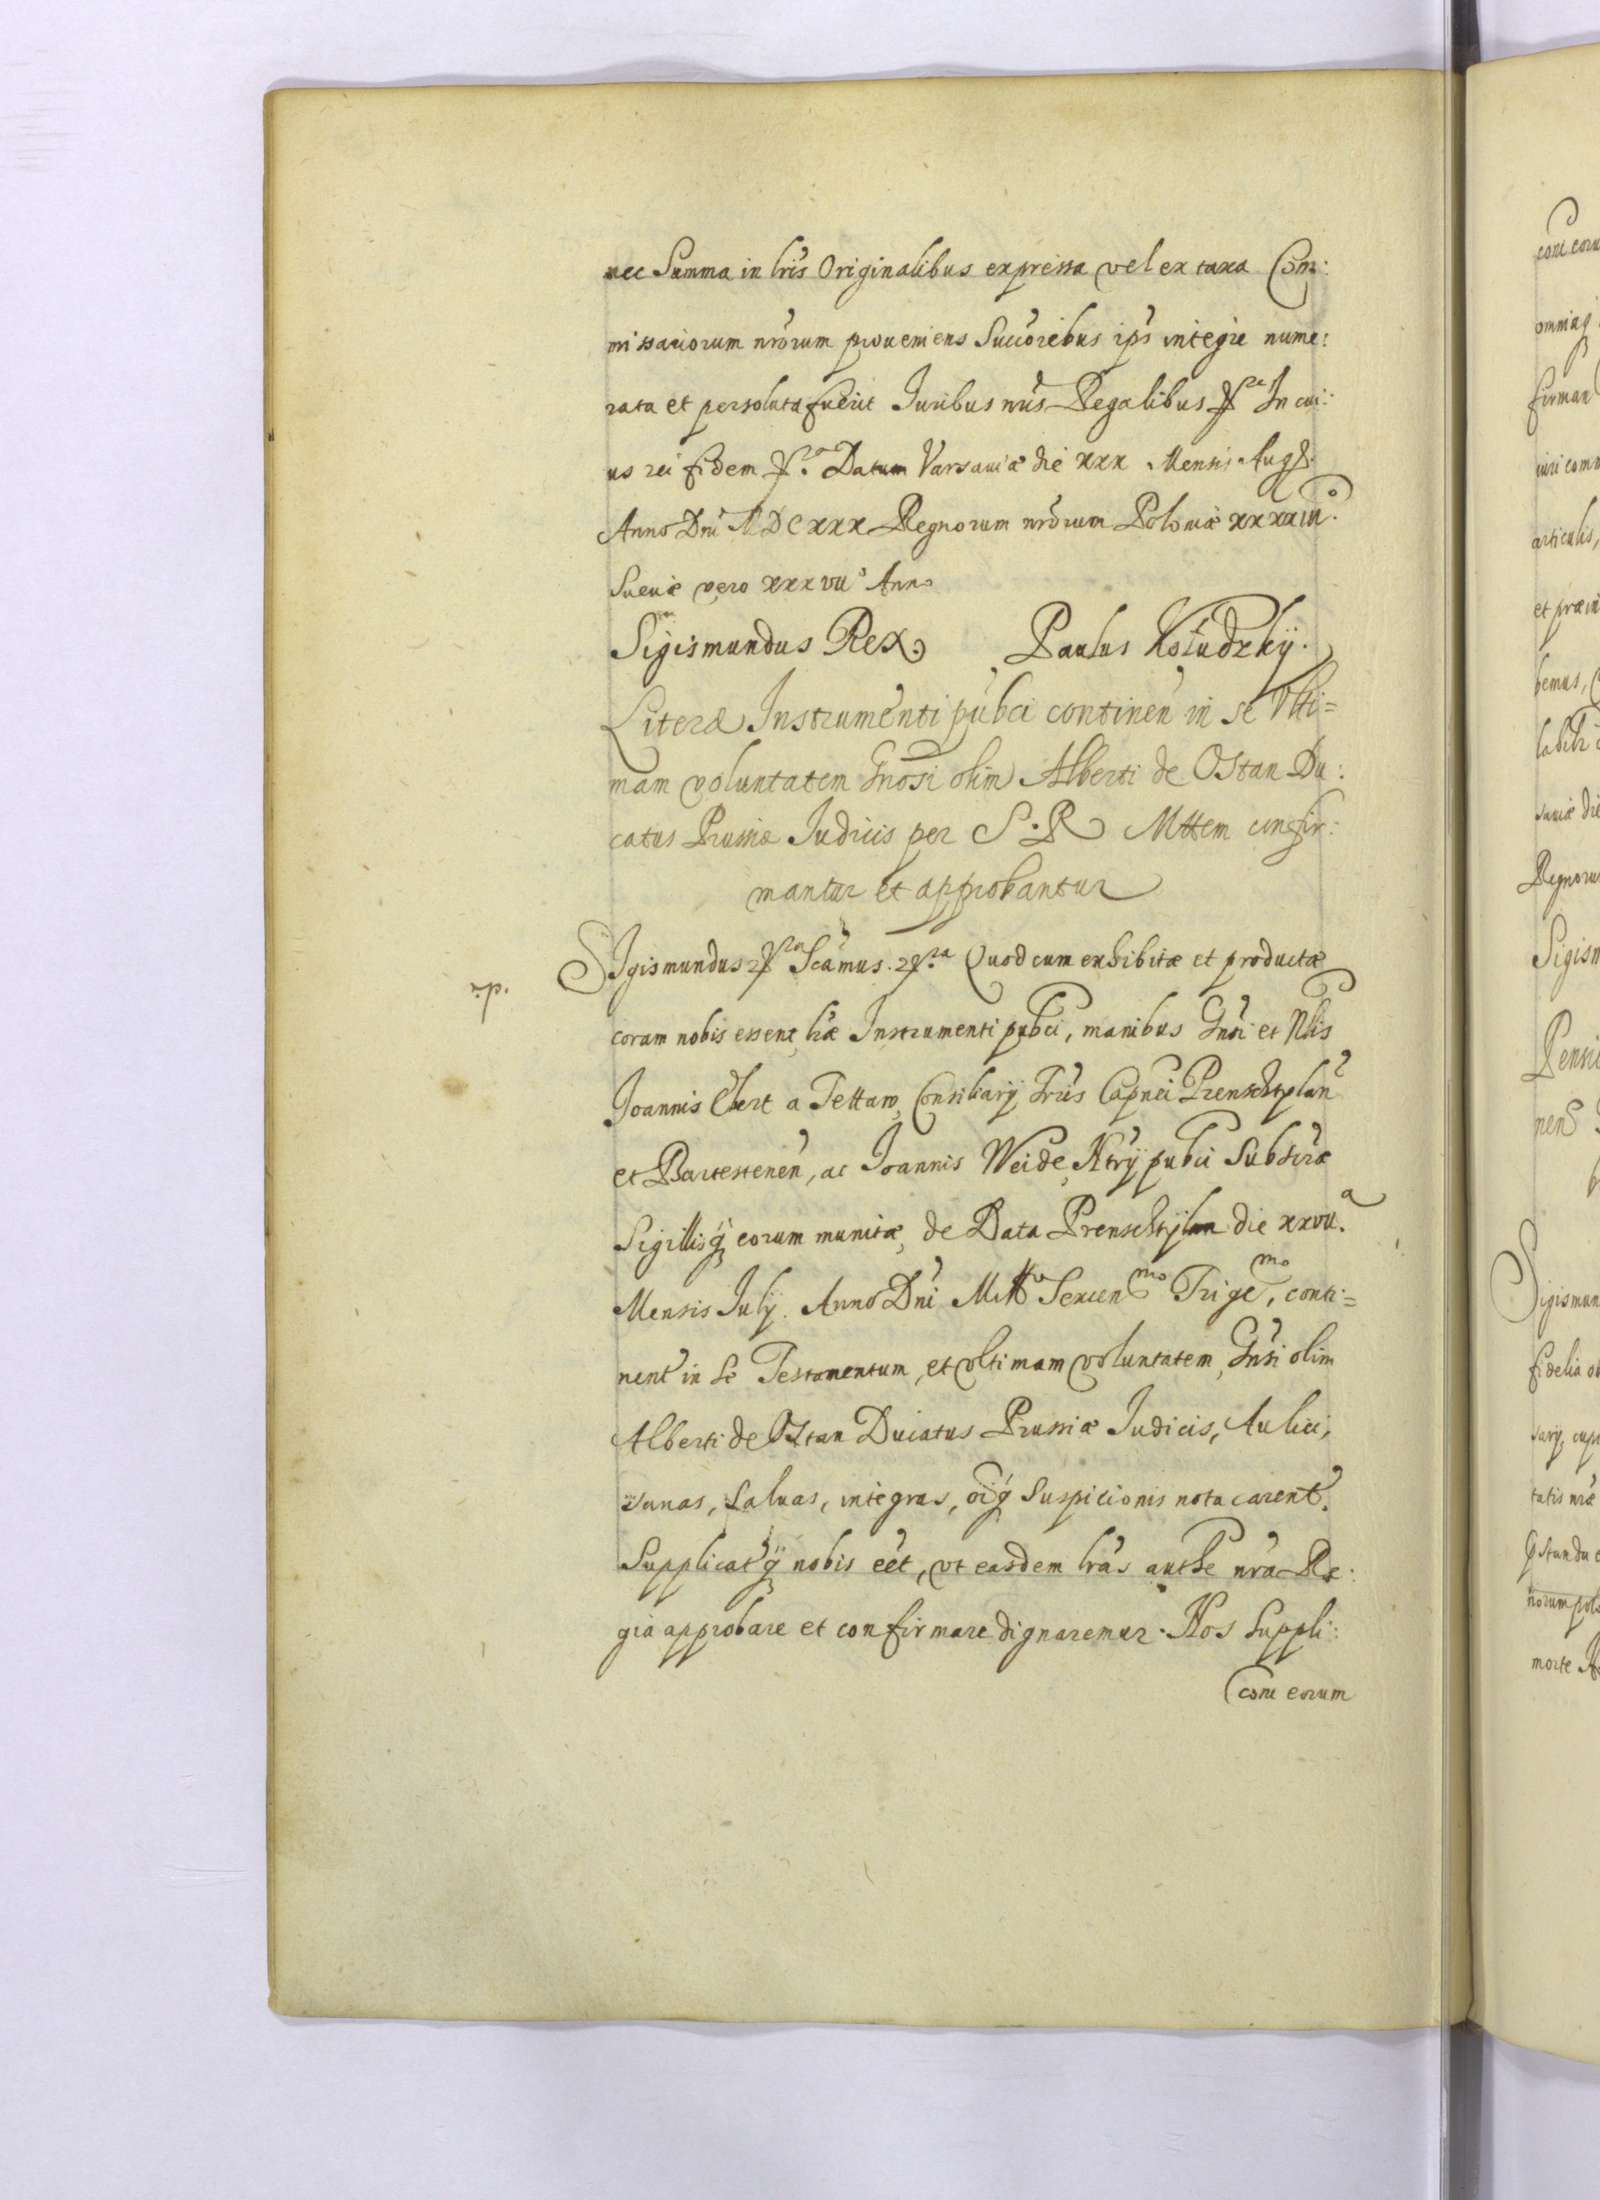 nec Summa in lris Originalibus expressa vel ex taxa Com:
missariorum nrorum proueniens Succoribus ips integre nume:
rata et persoluta fuerit Iuribus nris Regalibus In cui:
us rei fidem Datum Varsauiæ die xxx Mensis Aug
Anno Dni MDCxxx Regnorum nrorum Poloniæ xxxxiii
Sueuiæ vero xxxvii Anno
Sigismundus Rex Paulus Kołudzky.
Literæ Instrumenti pubci continen in se Vlti=
mam voluntatem Gnosi olim Alberti de Ostan Du:
catus Prussiæ Iudicis per S. R Mttem confir:
mantur et approbantur
SIgismundus Scamus. Quod cum exhibitæ et productæ
coram nobis essent lræ Instrumenti pubci, manibus Gnsi et Nlis
Joannis Ebert a Tettaw, Consiliarij
et Bartestenen, ac Joannis Weide, Ntrij pubci Subscræ
Sigillisq eorum munitæ, de Data die xxvii.a
Mensis Julij. Anno Dni Mill Sexcen mo Trige mo, conti=
nent in se Testamentum, et vltimam voluntatem, Gnsi olim
Alberti de Ostan Ducatus Prussiæ Iudicis, Aulici,
sanas, saluas, integras, oiq suspicionis nota carent.
Supplicatq nobis eet, vt easdem lras authe nra Re:
gia approbare et confirmare dignaremur. Nos Suppli:
cone eorum